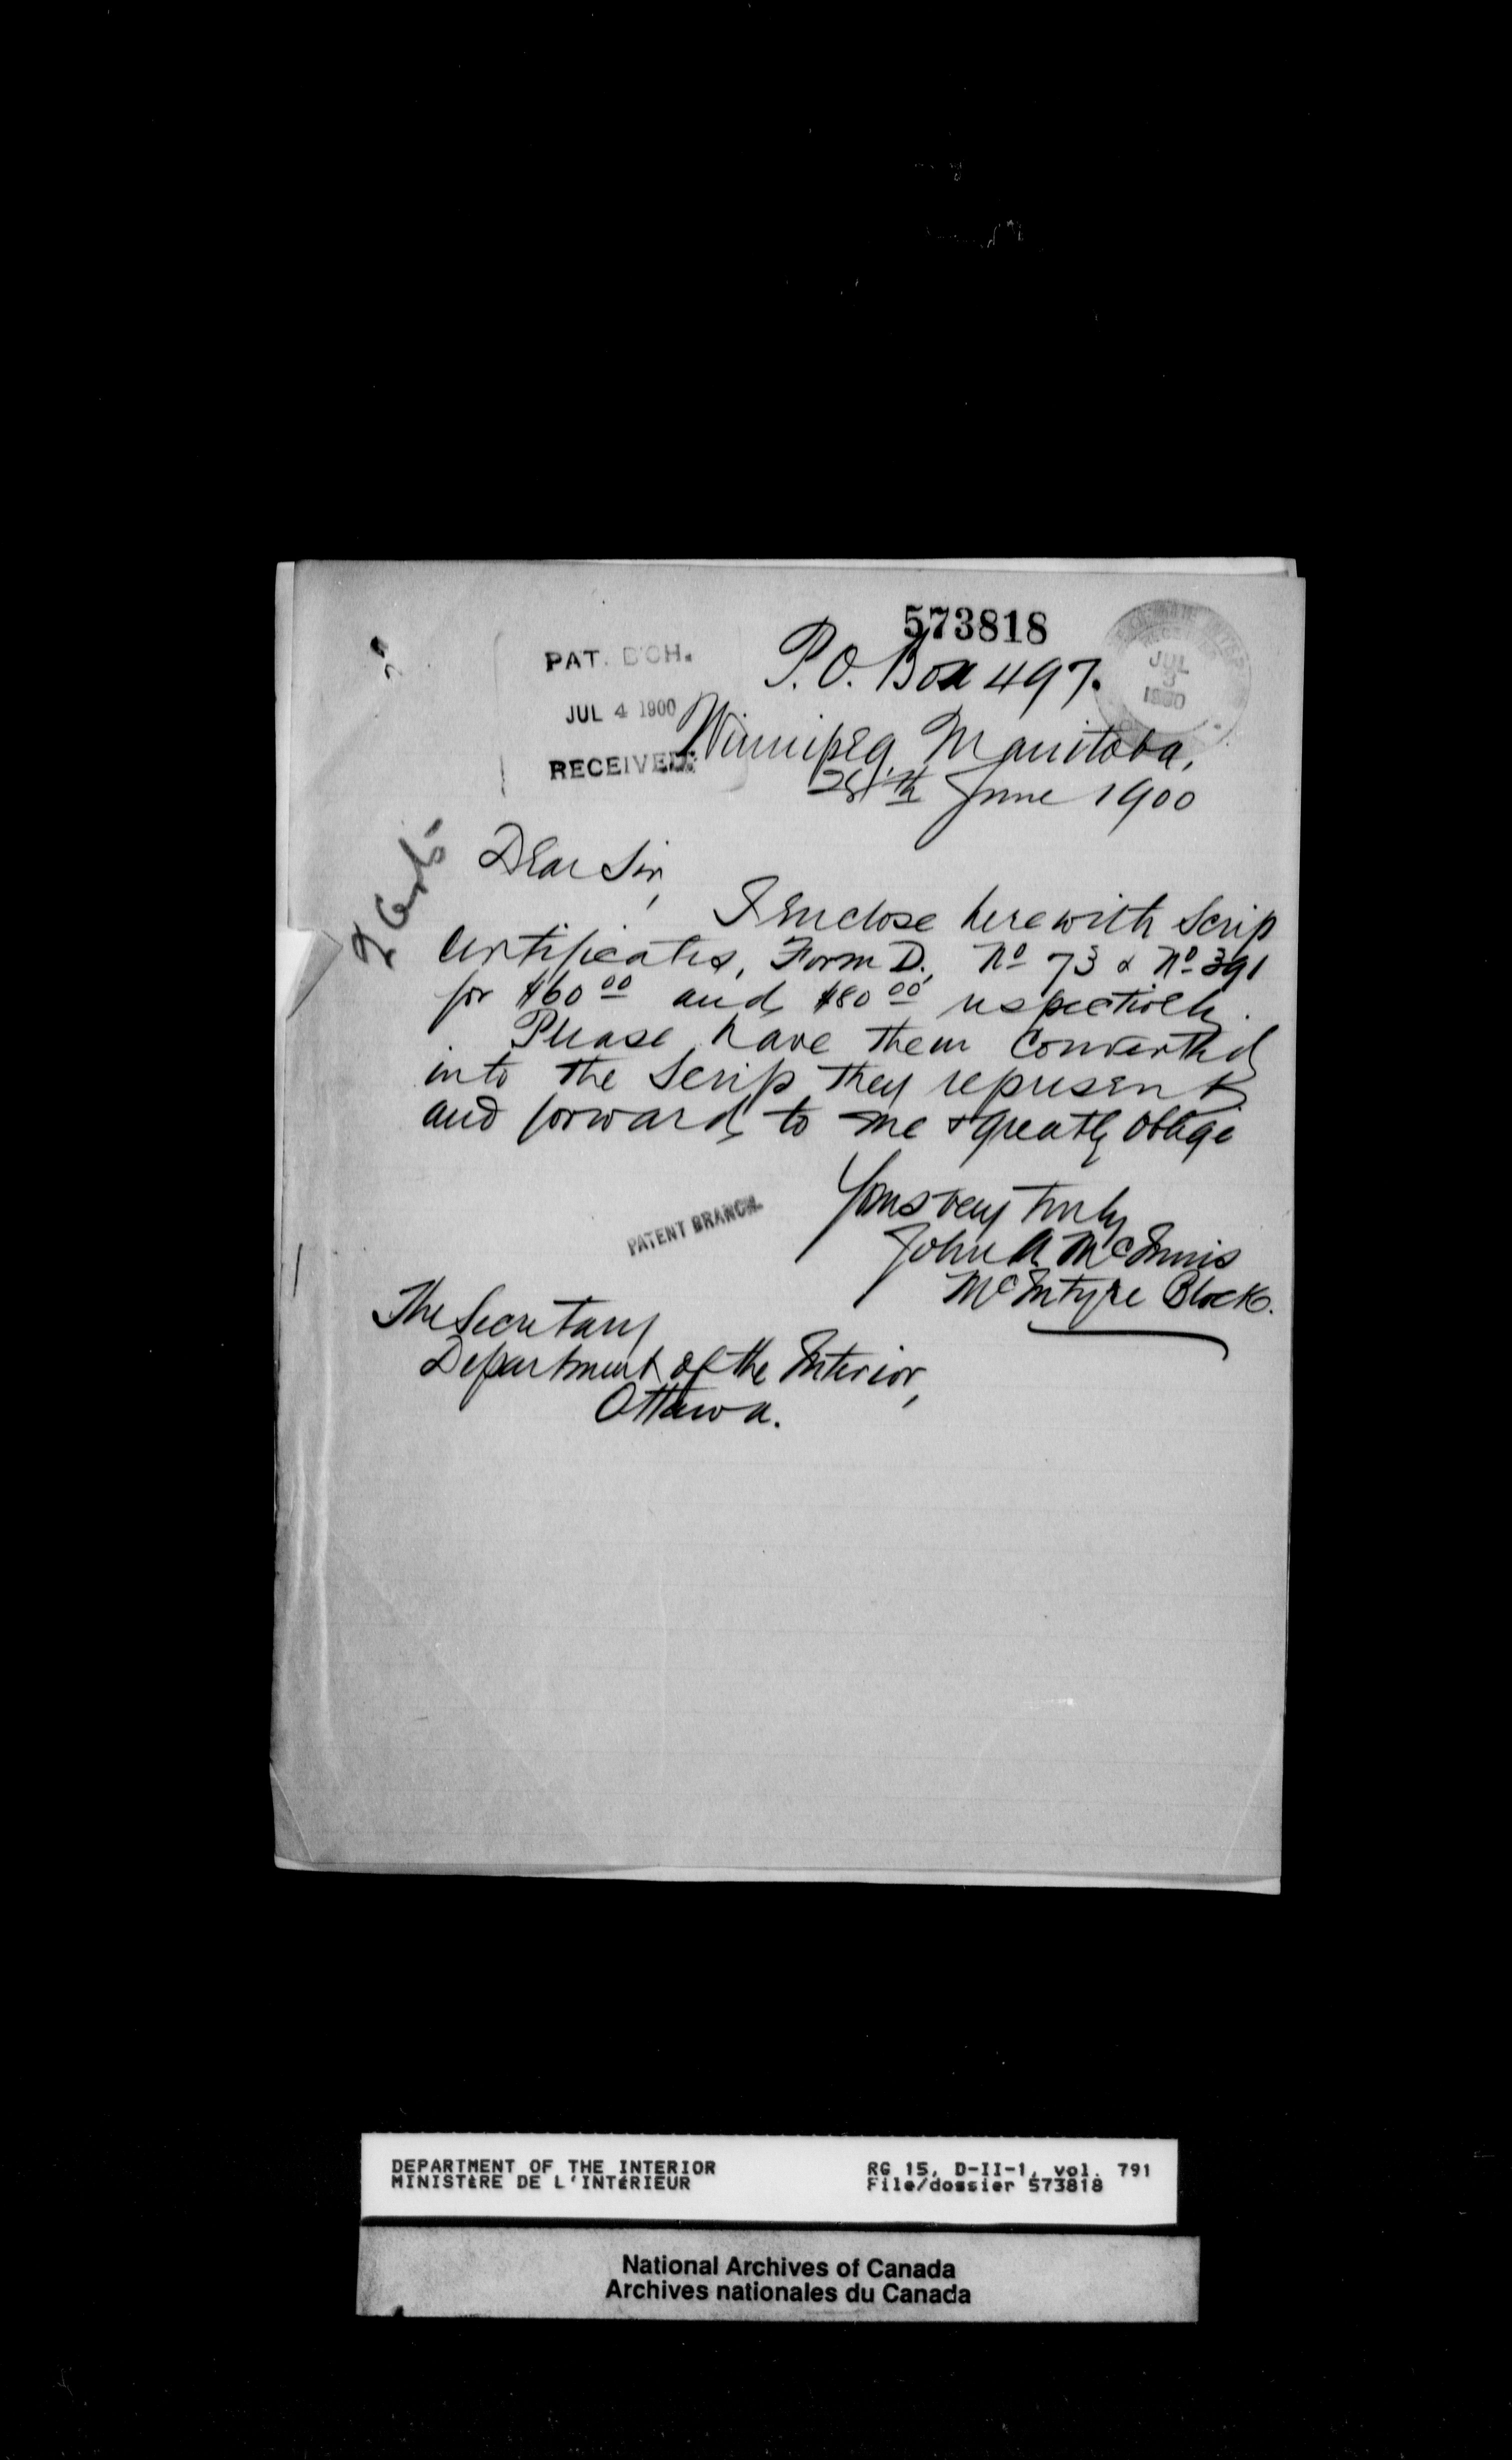 573818
PAT. B'CH.
JUL 4 1900
RECEIVED
JUL
3
1900
P.O. Box 497.
Winnipeg, Manitoba,
28th June 1900
2 Certs.
Dear Sir,
I enclose herewith Scrip
Certificates, Form D., No 73 & No 391
for $60 00 and $80 00 respectively.
Please have them converted
into the Scrip they represent
and forward to me & greatly oblige
Yours very truly
John A McInnis
McIntyre Block.
PATENT BRANCH.
The Secretary
Department of the Interior,
Ottawa.
DEPARTMENT OF THE INTERIOR
MINISTÈRE DE L'INTÉRIEUR
RG 15, D-II-1, vol. 791
File/dossier 573818
National Archives of Canada
Archives nationales du Canada